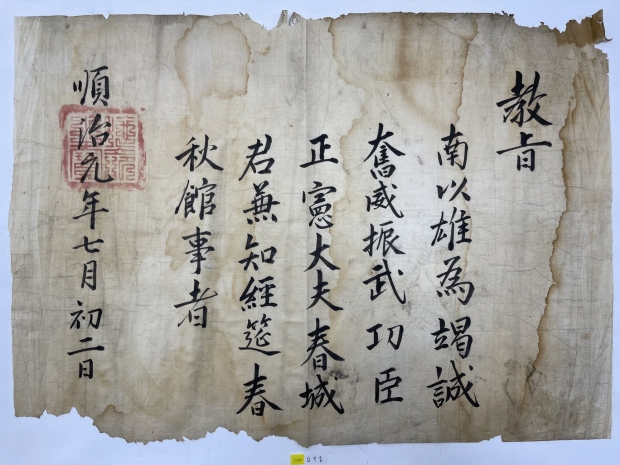 教旨
南以雄為竭誠
奮威振武功臣
正憲大夫春城
君兼知經筵春
秋館事者
順治元年七月初二日